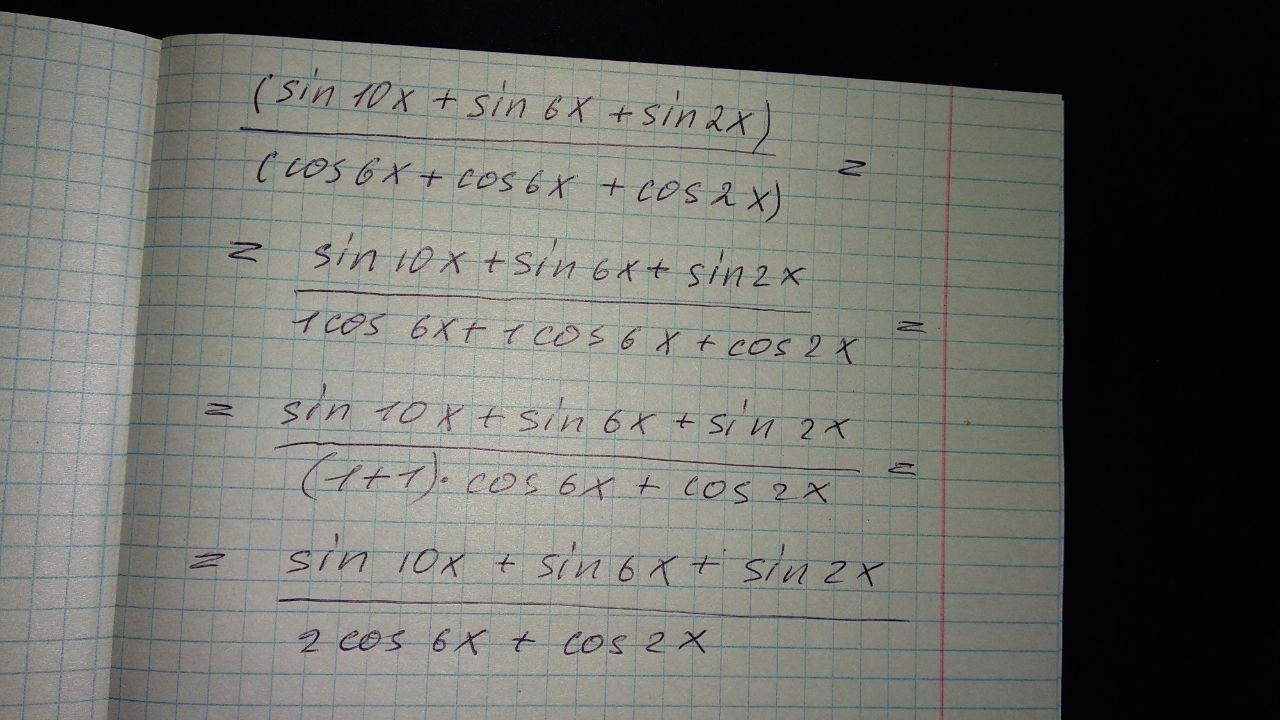 (sin 10x + sin 6x + sin 2x)
(cos 6x + cos 6x + cos 2x) =
= sin 10x + sin 6x + sin 2x
1 cos 6x + 1 cos 6x + cos 2x =
= sin 10x + sin 6x + sin 2x
(1+1)·cos 6x + cos 2x =
= sin 10x + sin 6x + sin 2x
2 cos 6x + cos 2x